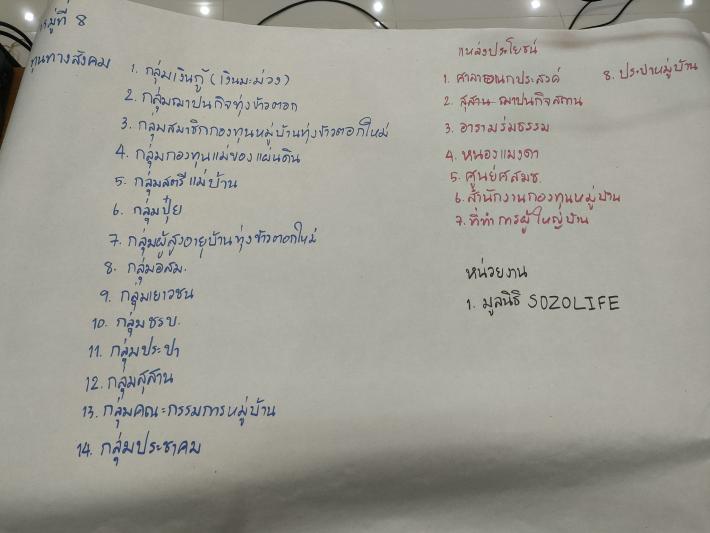 หมู่ที่ 8
ทุนทางสังคม
1. กลุ่มเงินกู้ (เงินมะม่วง)
2. กลุ่มฌาปนกิจทุ่งข้าวตอก
3. กลุ่มสมาชิกกองทุนหมู่บ้านทุ่งข้าวตอกใหม่
4. กลุ่มกองทุนแม่ของแผ่นดิน
5. กลุ่มสตรีแม่บ้าน
6. กลุ่มปุ๋ย
7. กลุ่มผู้สูงอายุบ้านทุ่งข้าวตอกใหม่
8. กลุ่มอสม.
9. กลุ่มเยาวชน
10. กลุ่มชรบ.
11. กลุ่มประปา
12. กลุ่มสุสาน
13. กลุ่มคณะกรรมการหมู่บ้าน
14. กลุ่มประชาคม
แหล่งประโยชน์
1. ศาลาอเนกประสงค์
2. สุสาน ฌาปนกิจสถาน
3. อารามร่มธรรม
4. หนองแมงดา
5. ศูนย์ศสมช.
6. สำนักงานกองทุนหมู่บ้าน
7. ที่ทำการผู้ใหญ่บ้าน
8. ประปาหมู่บ้าน
หน่วยงาน
1. มูลนิธิ SOZOLIFE